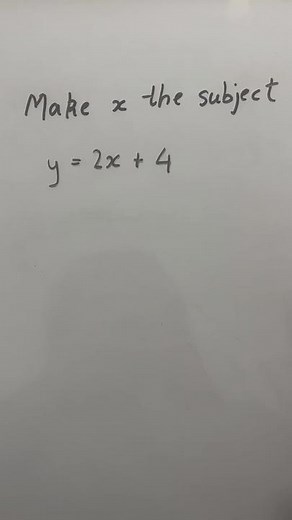 Make x the subject
y = 2x + 4